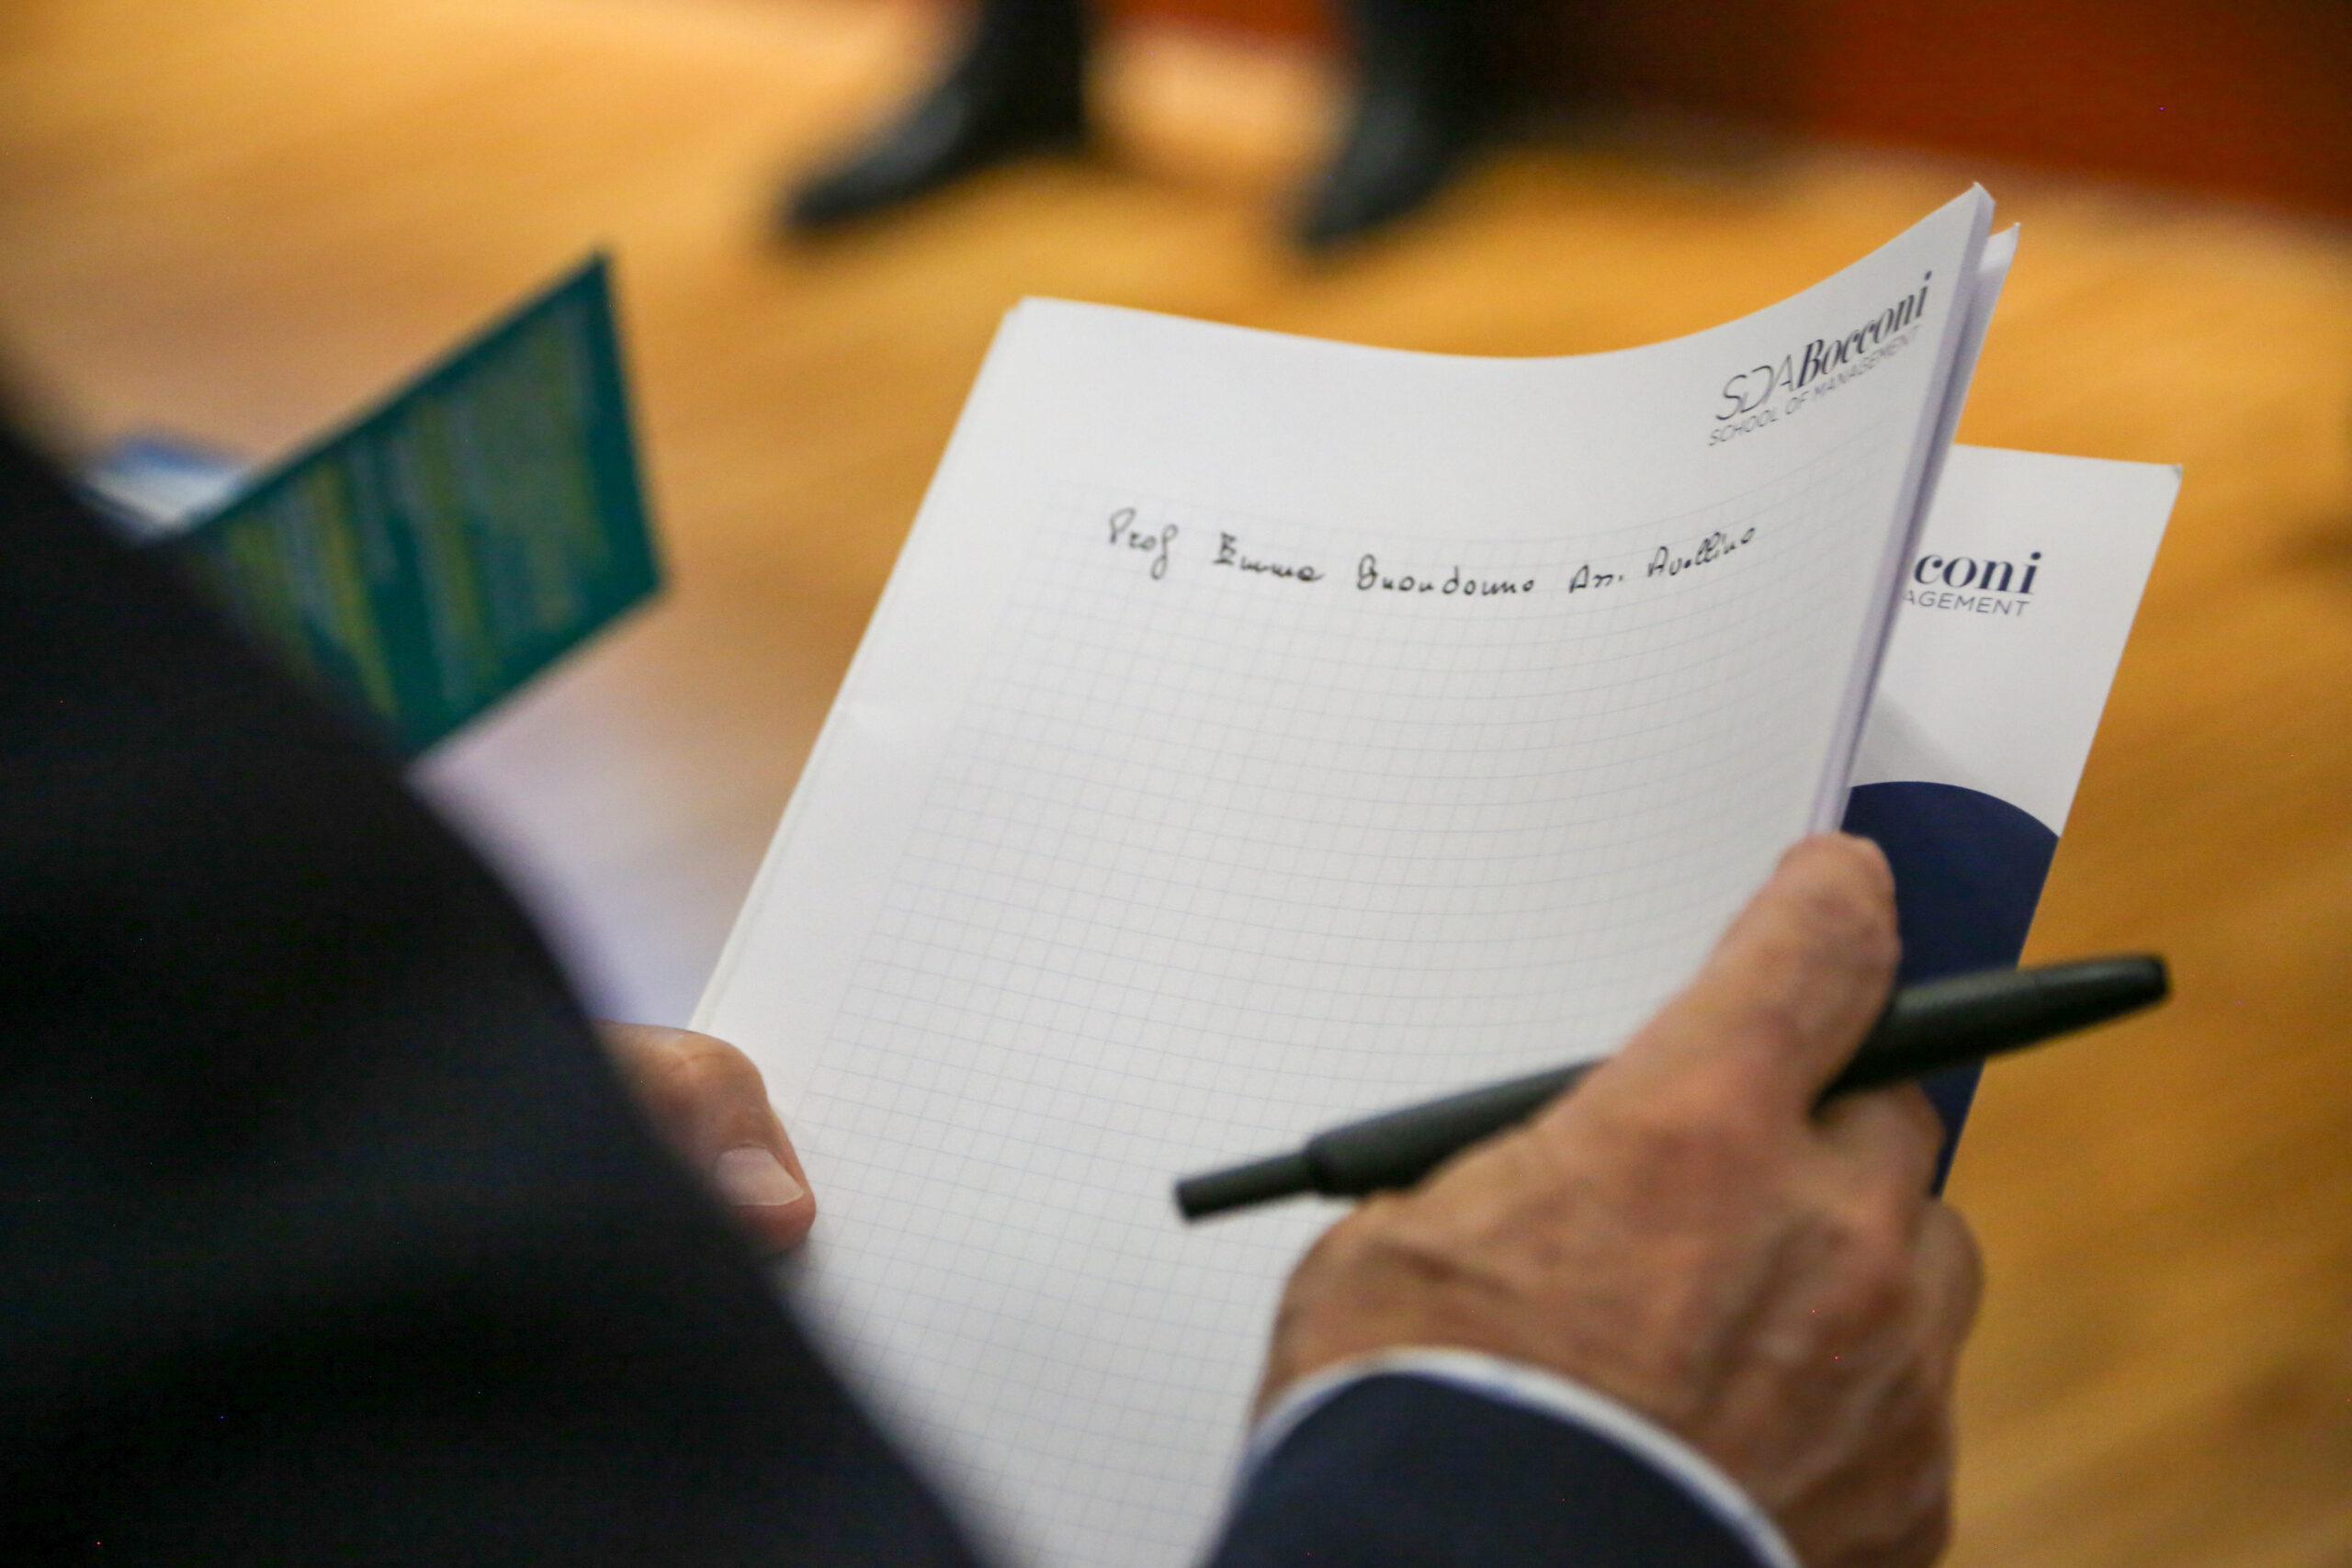 SDA Bocconi
SCHOOL OF MANAGEMENT
Prof Emma Buondonno Ass. Avellino
cconi
AGEMENT